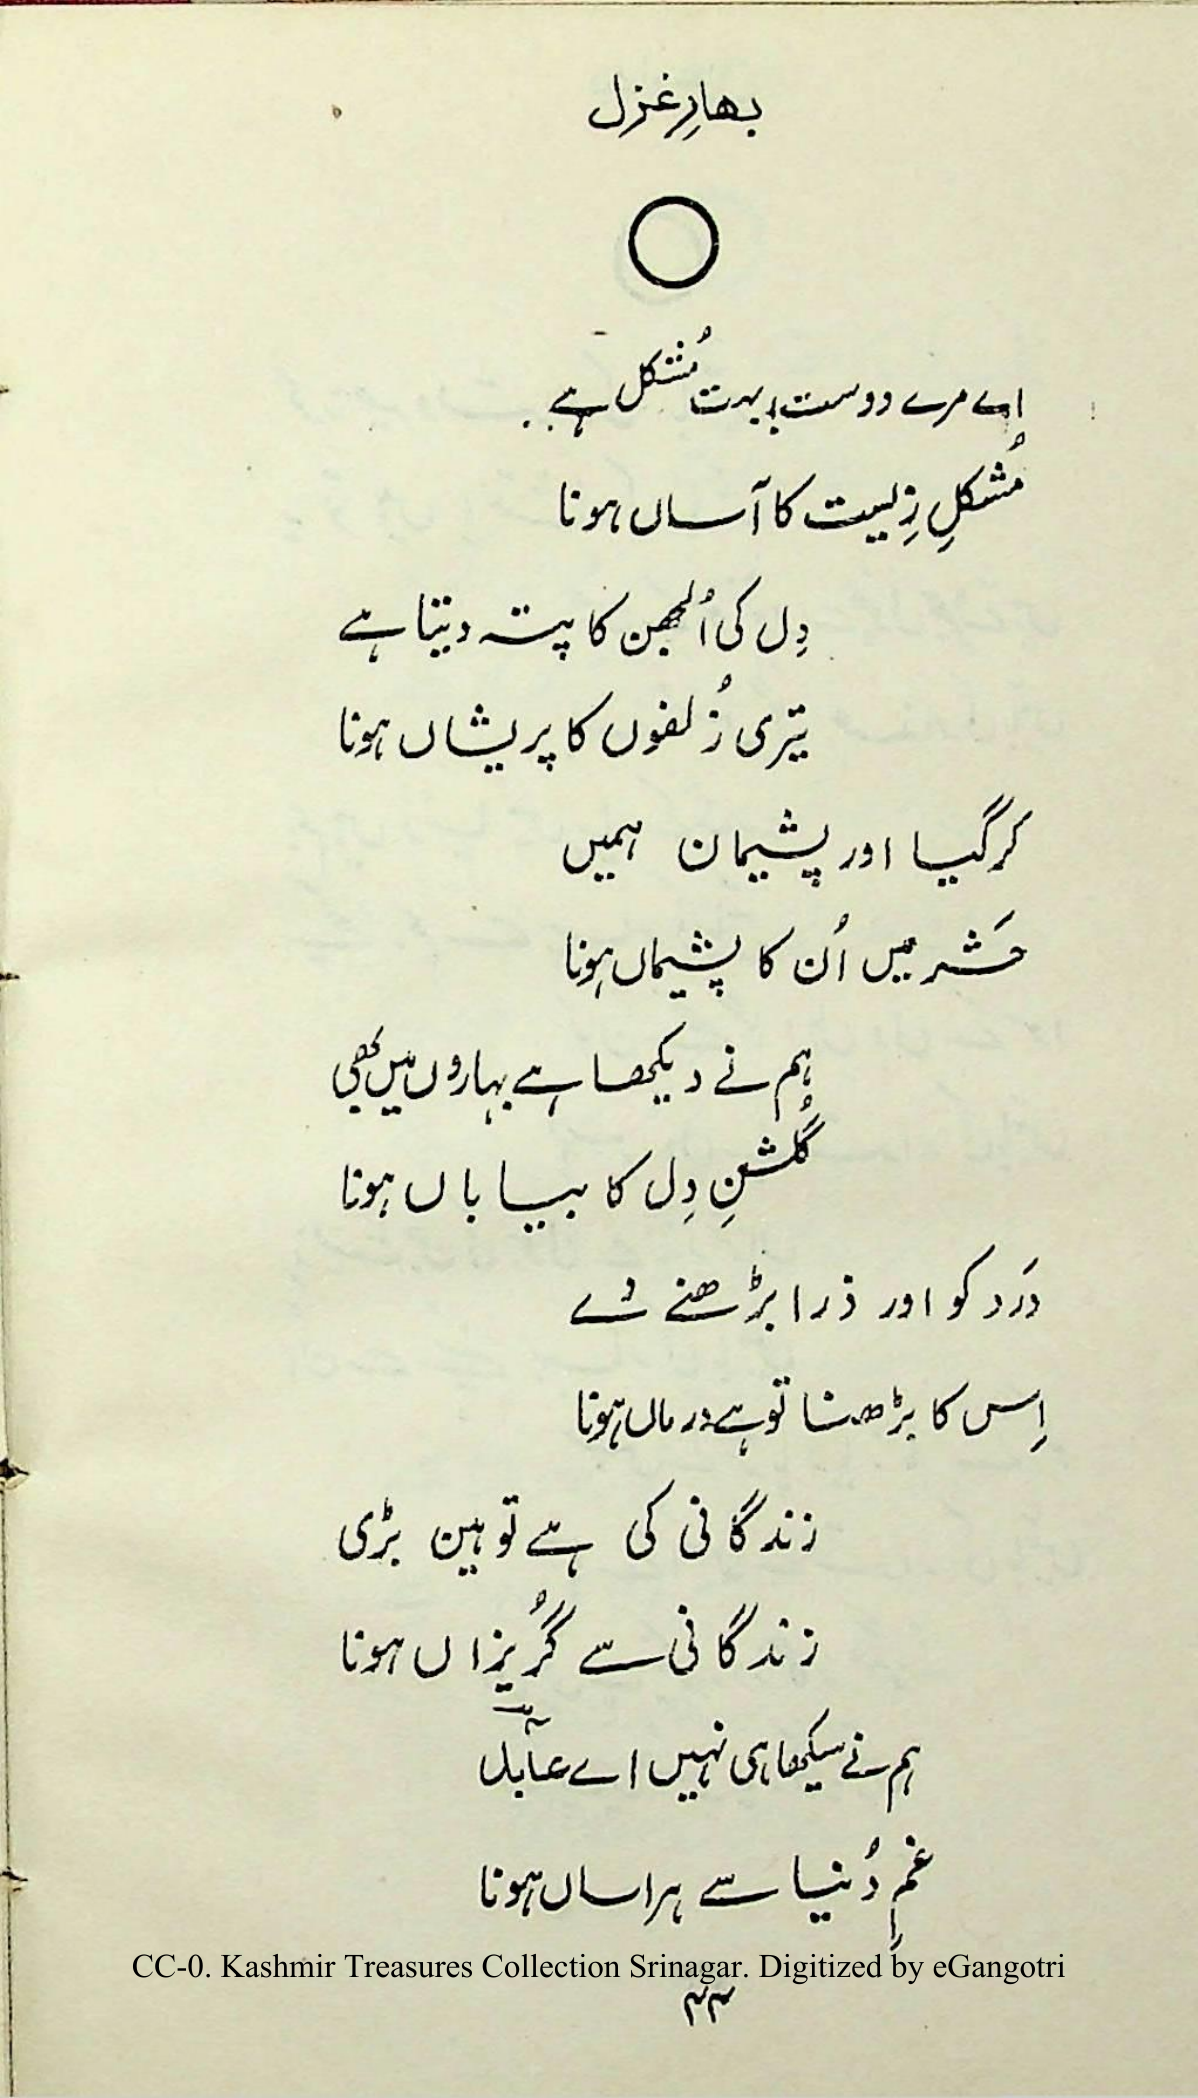 بھارِ غزل
اے مرے دوست، بہت مُشکل ہے
مُشکلِ زِیست کا آساں ہونا
دِل کی اُلجھن کا پتہ دیتا ہے
تیری زُلفوں کا پریشاں ہونا
کر گیا اور پشیمان ہمیں
حَشر میں اُن کا پشیماں ہونا
ہم نے دیکھا ہے بہاروں میں بھی
گُلشنِ دِل کا بیاباں ہونا
دَرد کو اور ذرا بڑھنے دے
اِس کا بڑھنا تو ہے درماں ہونا
زندگانی کی ہے توہین بڑی
زندگانی سے گُریزاں ہونا
ہم نے سیکھا ہی نہیں اے عابدؔ
غمِ دُنیا سے ہراساں ہونا
CC-0. Kashmir Treasures Collection Srinagar. Digitized by eGangotri